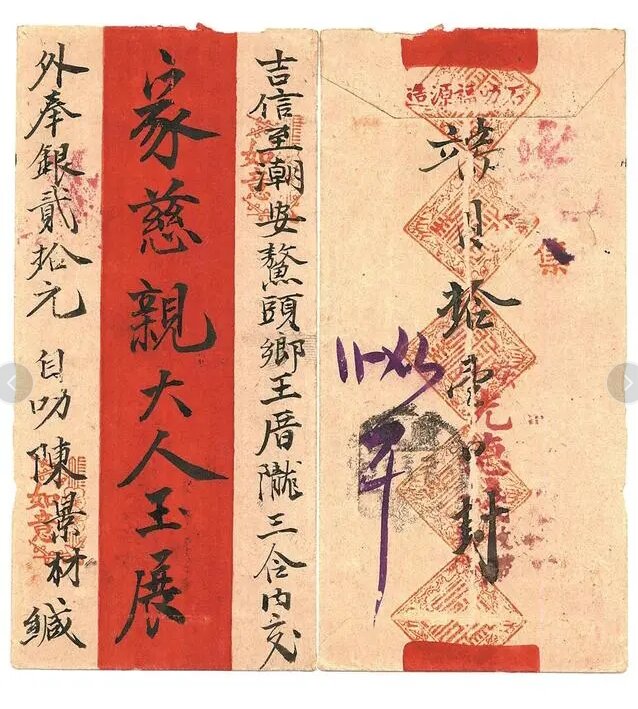 吉信至潮安鰲頭鄉王厝隴三合內交
家慈親大人玉展
外奉銀貳拾元 自叻陳景材緘
如意
如意
石叻福源造
月拾壹日封
集
光德